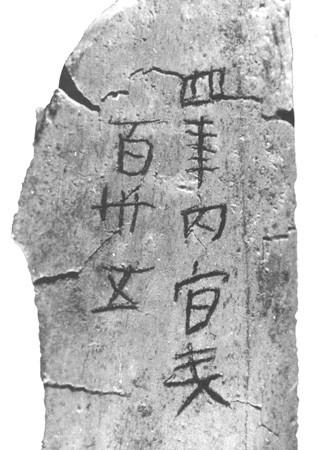 四年内官弟
百卅五